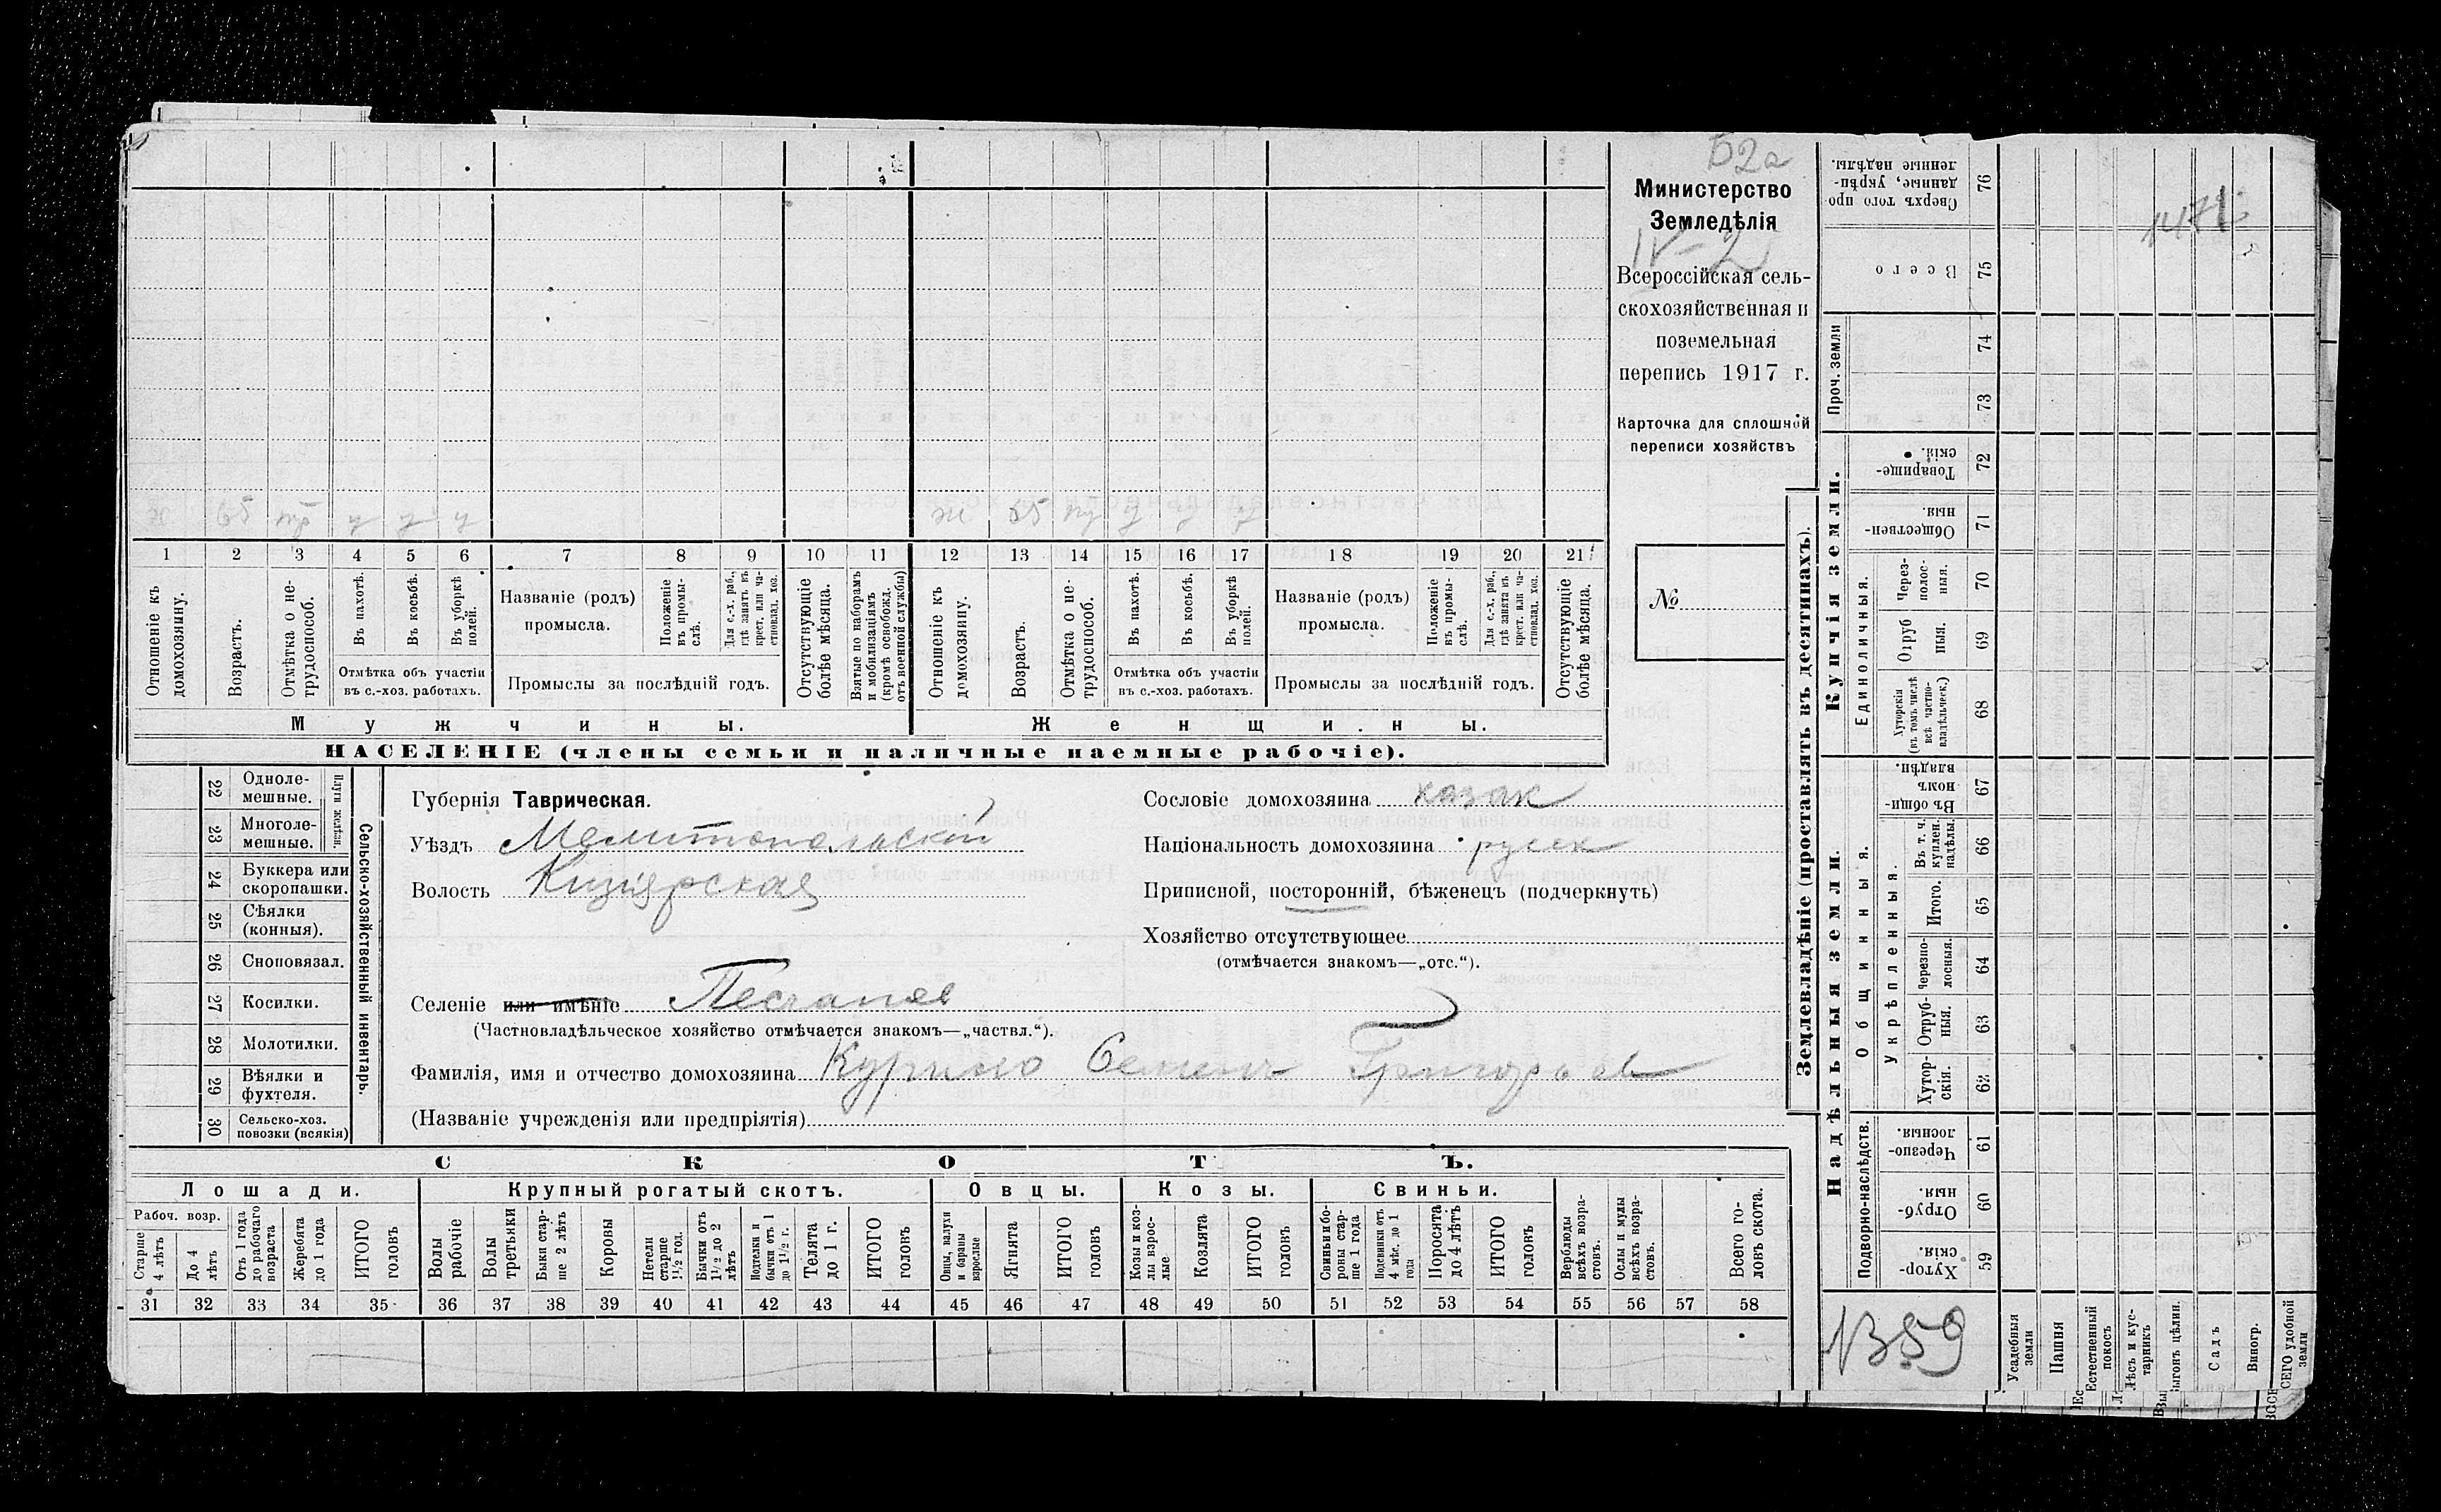 Б2а
Министерство
Земледѣлія
IV-2
Всероссійская сель-
скохозяйственная и
поземельная
перепись 1917 г.
Карточка для сплошной
переписи хозяйствъ
№
ж 65 пр у у у
ж 65 пр у у у
1 2 3 4 5 6 7 8 9 10 11 12 13 14 15 16 17 18 19 20 21
Отношеніе къ домохозяину.
Возрастъ.
Отмѣтка о не-трудоспособ.
Въ пахотѣ.
Въ косьбѣ.
Въ уборкѣ полей.
Отмѣтка объ участіи
въ с.-хоз. работахъ.
Названіе (родъ)
промысла.
Положеніе въ промы-слѣ.
Для с.-х. раб., гдѣ занятъ въ крест. или ча-стновлад. хоз.
Промыслы за послѣдній годъ.
Отсутствующіе болѣе мѣсяца.
Взятые по наборамъ и мобилизаціямъ (кромѣ освобожд. отъ военной службы)
Отношеніе къ домохозяину.
Возрастъ.
Отмѣтка о не-трудоспособ.
Въ пахотѣ.
Въ косьбѣ.
Въ уборкѣ полей.
Отмѣтка объ участіи
въ с.-хоз. работахъ.
Названіе (родъ)
промысла.
Положеніе въ промы-слѣ.
Для с.-х. раб., гдѣ занята въ крест. или ча-стновлад. хоз.
Промыслы за послѣдній годъ.
Отсутствующіе болѣе мѣсяца.
Мужчины. Женщины.
НАСЕЛЕНІЕ (члены семьи и наличные наемные рабочіе).
22 Одноле-мешные.
23 Многоле-мешные.
Плуги желѣзн.
24 Буккера или скоропашки.
25 Сѣялки (конныя).
26 Сноповязал.
27 Косилки.
28 Молотилки.
29 Вѣялки и фухтеля.
30 Сельско-хоз. повозки (всякія)
Сельско-хозяйственный инвентарь.
Губернія Таврическая.
Уѣздъ Мелитопольский
Волость Кизіярская
Селеніе или имѣніе Песчаное
(Частновладѣльческое хозяйство отмѣчается знакомъ—„частвл.“).
Фамилія, имя и отчество домохозяина Семенъ Григорьев
(Названіе учрежденія или предпріятія)
Сословіе домохозяина казак
Національность домохозяина русск
Приписной, посторонній, бѣженецъ (подчеркнуть)
Хозяйство отсутствующее
(отмѣчается знакомъ—„отс.“).
СКОТЪ.
Лошади. Крупный рогатый скотъ. Овцы. Козы. Свиньи.
Рабоч. возр.
Старше 4 лѣтъ
До 4 лѣтъ
Отъ 1 года до рабочаго возраста
Жеребята до 1 года
ИТОГО головъ
Волы рабочіе
Волы третьяки
Быки стар-ше 2 лѣтъ
Коровы
Нетели старше 1½ год.
Бычки отъ 1½ до 2 лѣтъ
Подтелки и бычки отъ 1 до 1½ г.
Телята до 1 г.
ИТОГО головъ
Овцы, валухи и бараны взрослые
Ягнята
ИТОГО головъ
Козы и коз-лы взрос-лые
Козлята
ИТОГО головъ
Свиньи и бо-ровы стар-ше 1 года
Подсвинки отъ 4 мѣс. до 1 года
Поросята до 4 лѣтъ
ИТОГО головъ
Верблюды всѣхъ возра-стовъ.
Ослы и мулы всѣхъ возра-стовъ.
Всего го-ловъ скота.
31 32 33 34 35 36 37 38 39 40 41 42 43 44 45 46 47 48 49 50 51 52 53 54 55 56 57 58
Землевладѣніе (проставлять въ десятинахъ).
Купчія земли.
Надѣльныя земли.
Проч. земли
Единоличныя.
Общинныя.
Укрѣпленныя.
Подворно-наслѣдств.
76 Сверхъ того про-данные, укрѣп-ленные надѣлы.
75 Всего
74
73
72 Товарище-скій.
71 Обществен-ныя.
70 Через-полос-ныя.
69 Отруб ныя.
68 Хуторскія (въ томъ числѣ всѣ частно-владѣльческ.)
67 Въ общи-номъ владѣн.
66 Въ т. ч. куплен. надѣлы.
65 Итого.
64 Черезпо-лосныя.
63 Отруб-ныя.
62 Хутор-скія.
61 Черезпо-лосныя.
60 Отруб-ныя.
59 Хутор-скія.
1359
1471
Усадебныя земли
Пашня
Естественный покосъ
Лѣсъ и кус-тарникъ
Выгонъ цѣлин.
Садъ
Виногр.
ВСЕГО удобной земли